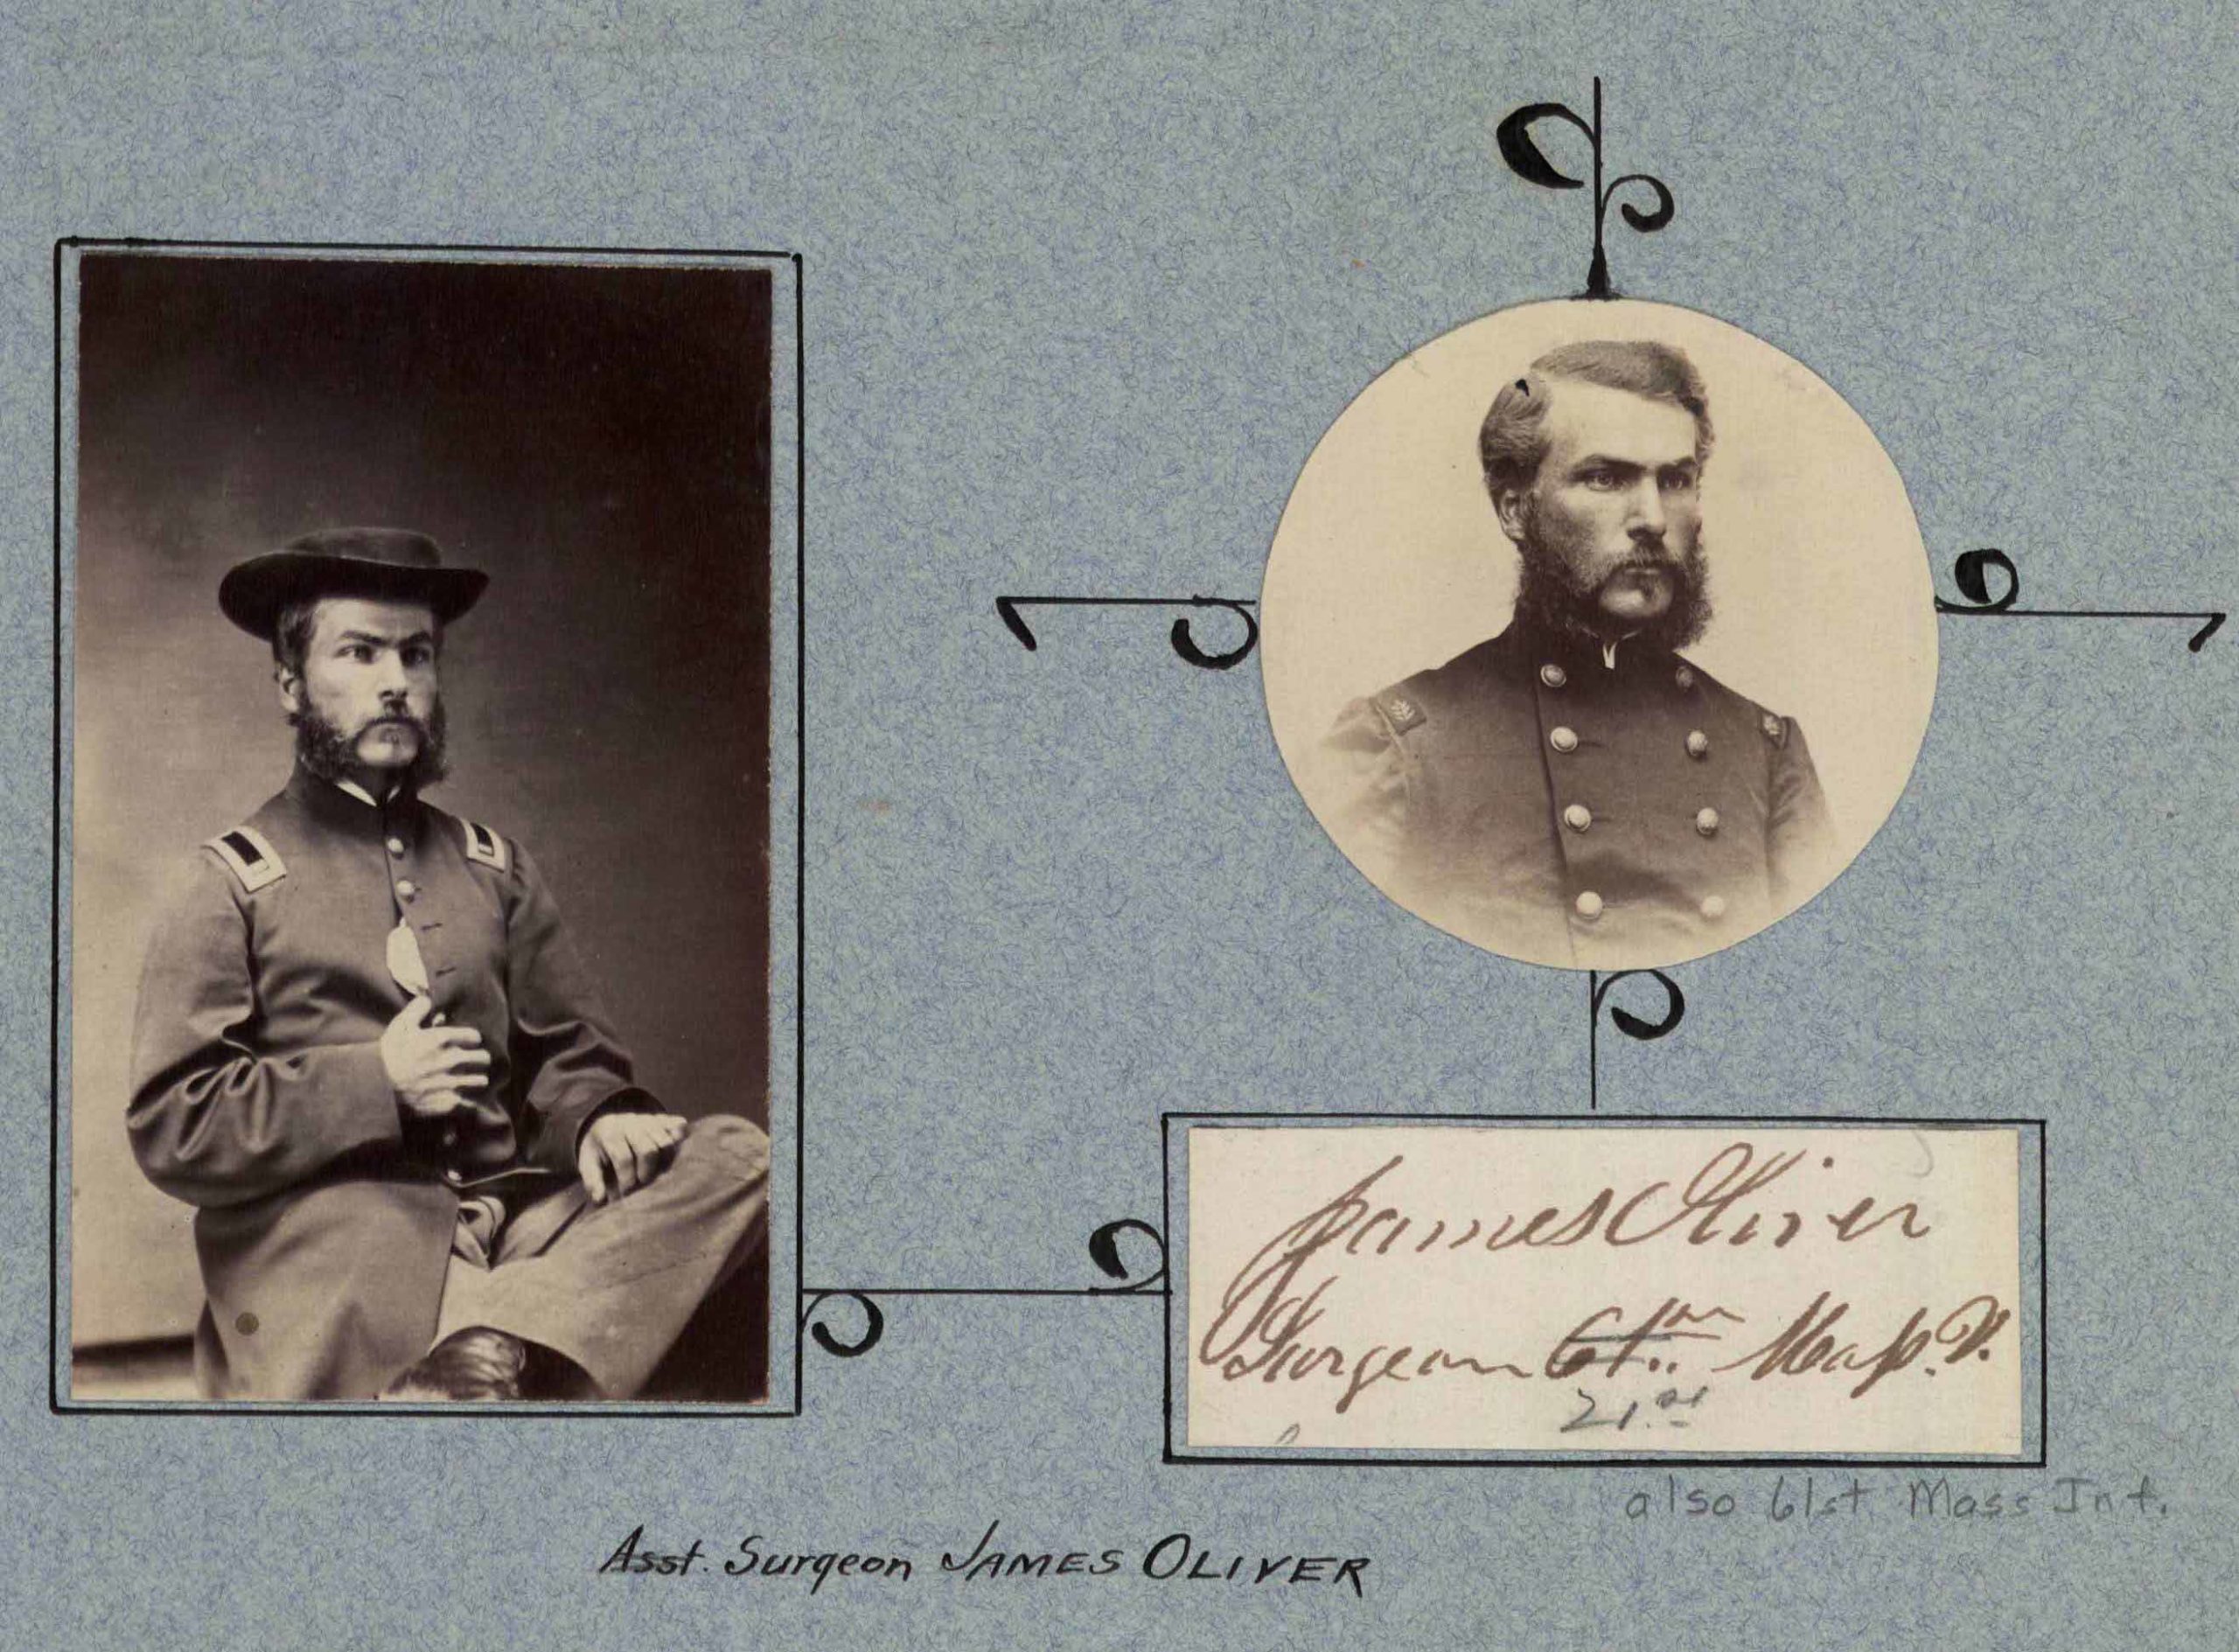 James Oliver
Surgeon 61st Mass. V.
21.st
also 61st Mass Inf.
Asst. Surgeon JAMES OLIVER